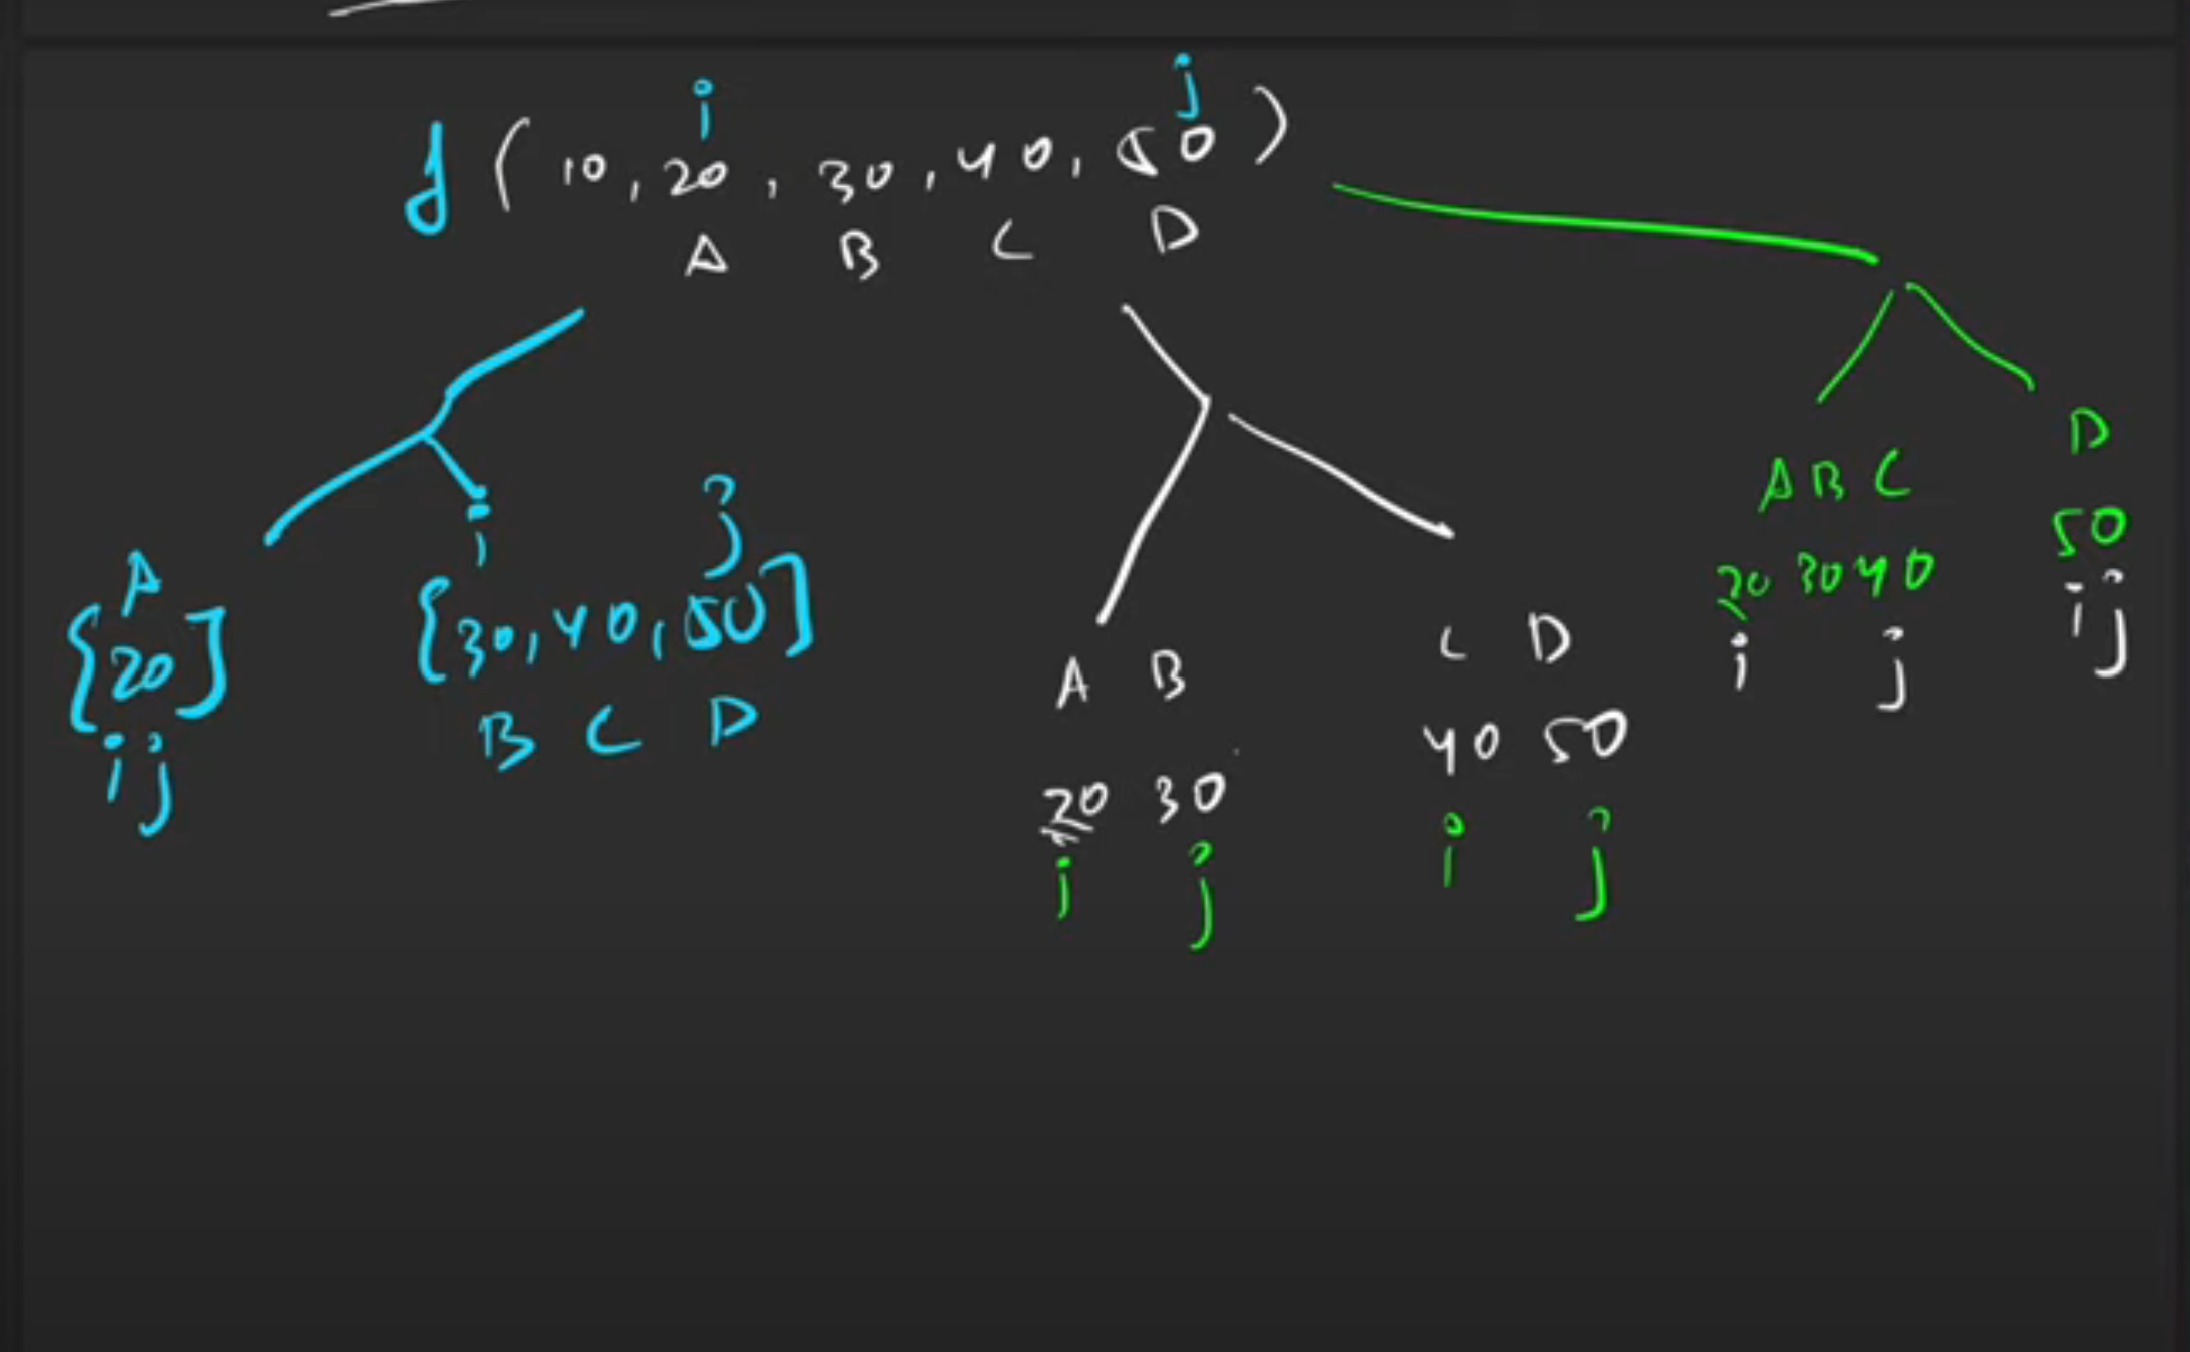 i j
f ( 10, 20, 30, 40, 50 )
A B C D
A
{20}
i j
i j
{30, 40, 50}
B C D
A B
20 30
i j
C D
40 50
i j
A B C
20 30 40
i j
D
50
i j